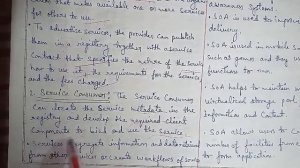 that makes available one or more services
for others to use.
To advertise services, the provider can publish
them in a registry together with a service
contract that specifies the nature of the service
how to use it, the requirements for the service
and the fee charged.
2. Service Consumer: The Service Consumer
can locate the service metadata in the
registry and develop the required client
components to bind and use the service
Services aggregate information and data retrieved
from other services or create workflows of
awareness systems.
SOA is used to improve
delivery.
SOA is used in mobile
games and they use
functions to run.
SOA helps to maintain
virtualized storage pool
information and content.
SOA allows users to
number of facilities from